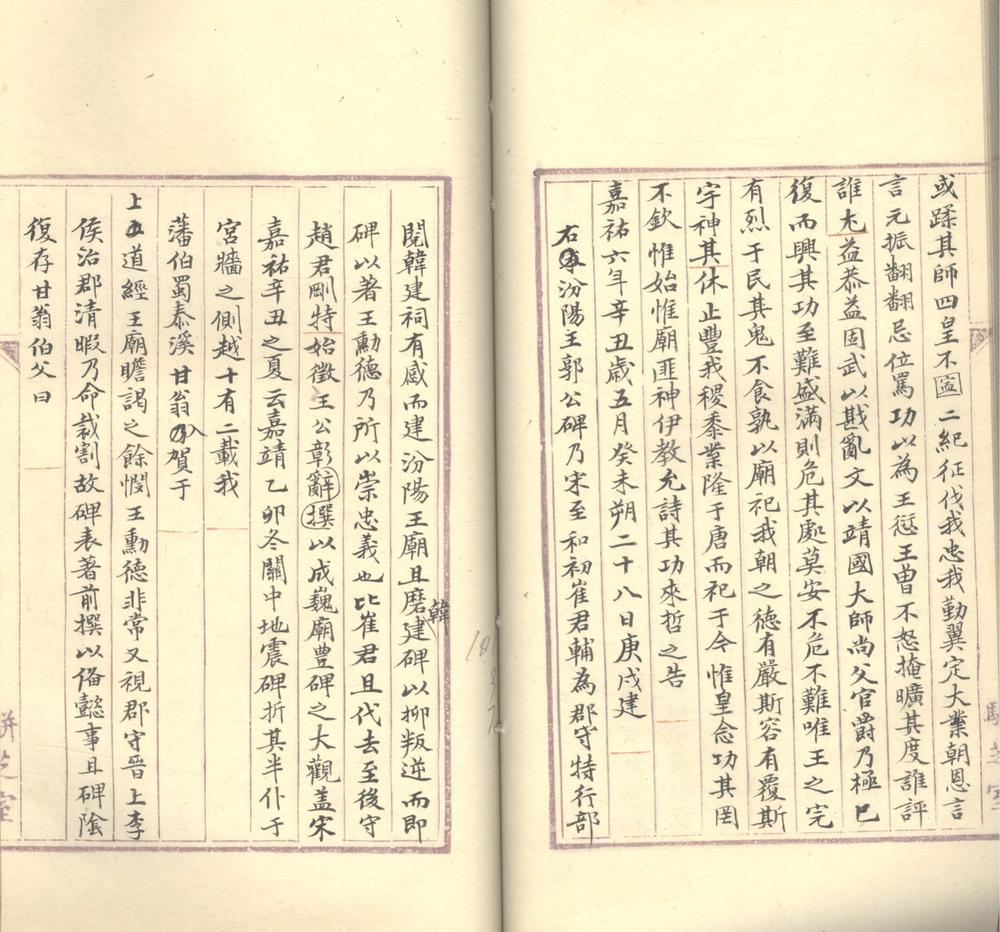 或蹂其師四皇不盗二紀征伐我忠我勤翼定大業朝恩言
言元振翩翩忌位罵功以為王愆王曾不怒掩曠其度誰評
誰尤益恭益固武以戡亂文以靖國大師尚父官爵乃極已
復而興其功至難盛滿則危其處莫安不危不難唯王之完
有烈于民其鬼不食孰以廟祀我朝之德有嚴斯容有覆斯
宇神其休止豐我稷黍業隆于唐而祀于今惟皇念功其罔
不欽惟始惟廟匪神伊教允詩其功來哲之告
嘉祐六年辛丑歲五月癸未朔二十八日庚戌建
右汾陽王郭公碑乃宋至和初崔君輔為郡守特行部
閱韓建祠有感而建汾陽王廟且磨韓建碑以抑叛逆而即
碑以著王勳德乃所以崇忠義也比崔君且代去至後守
趙君剛特始徵王公彰辭撰以成巍廟豊碑之大觀盖宋
嘉祐辛丑之夏云嘉靖乙卯冬關中地震碑折其半仆于
宮牆之側越十有二載我
藩伯蜀泰溪甘翁入賀于
上道經王廟瞻謁之餘憫王勳德非常又視郡守晉上李
侯治郡清暇乃命裁割故碑表著前撰以俻懿事且碑陰
復存甘翁伯父曰